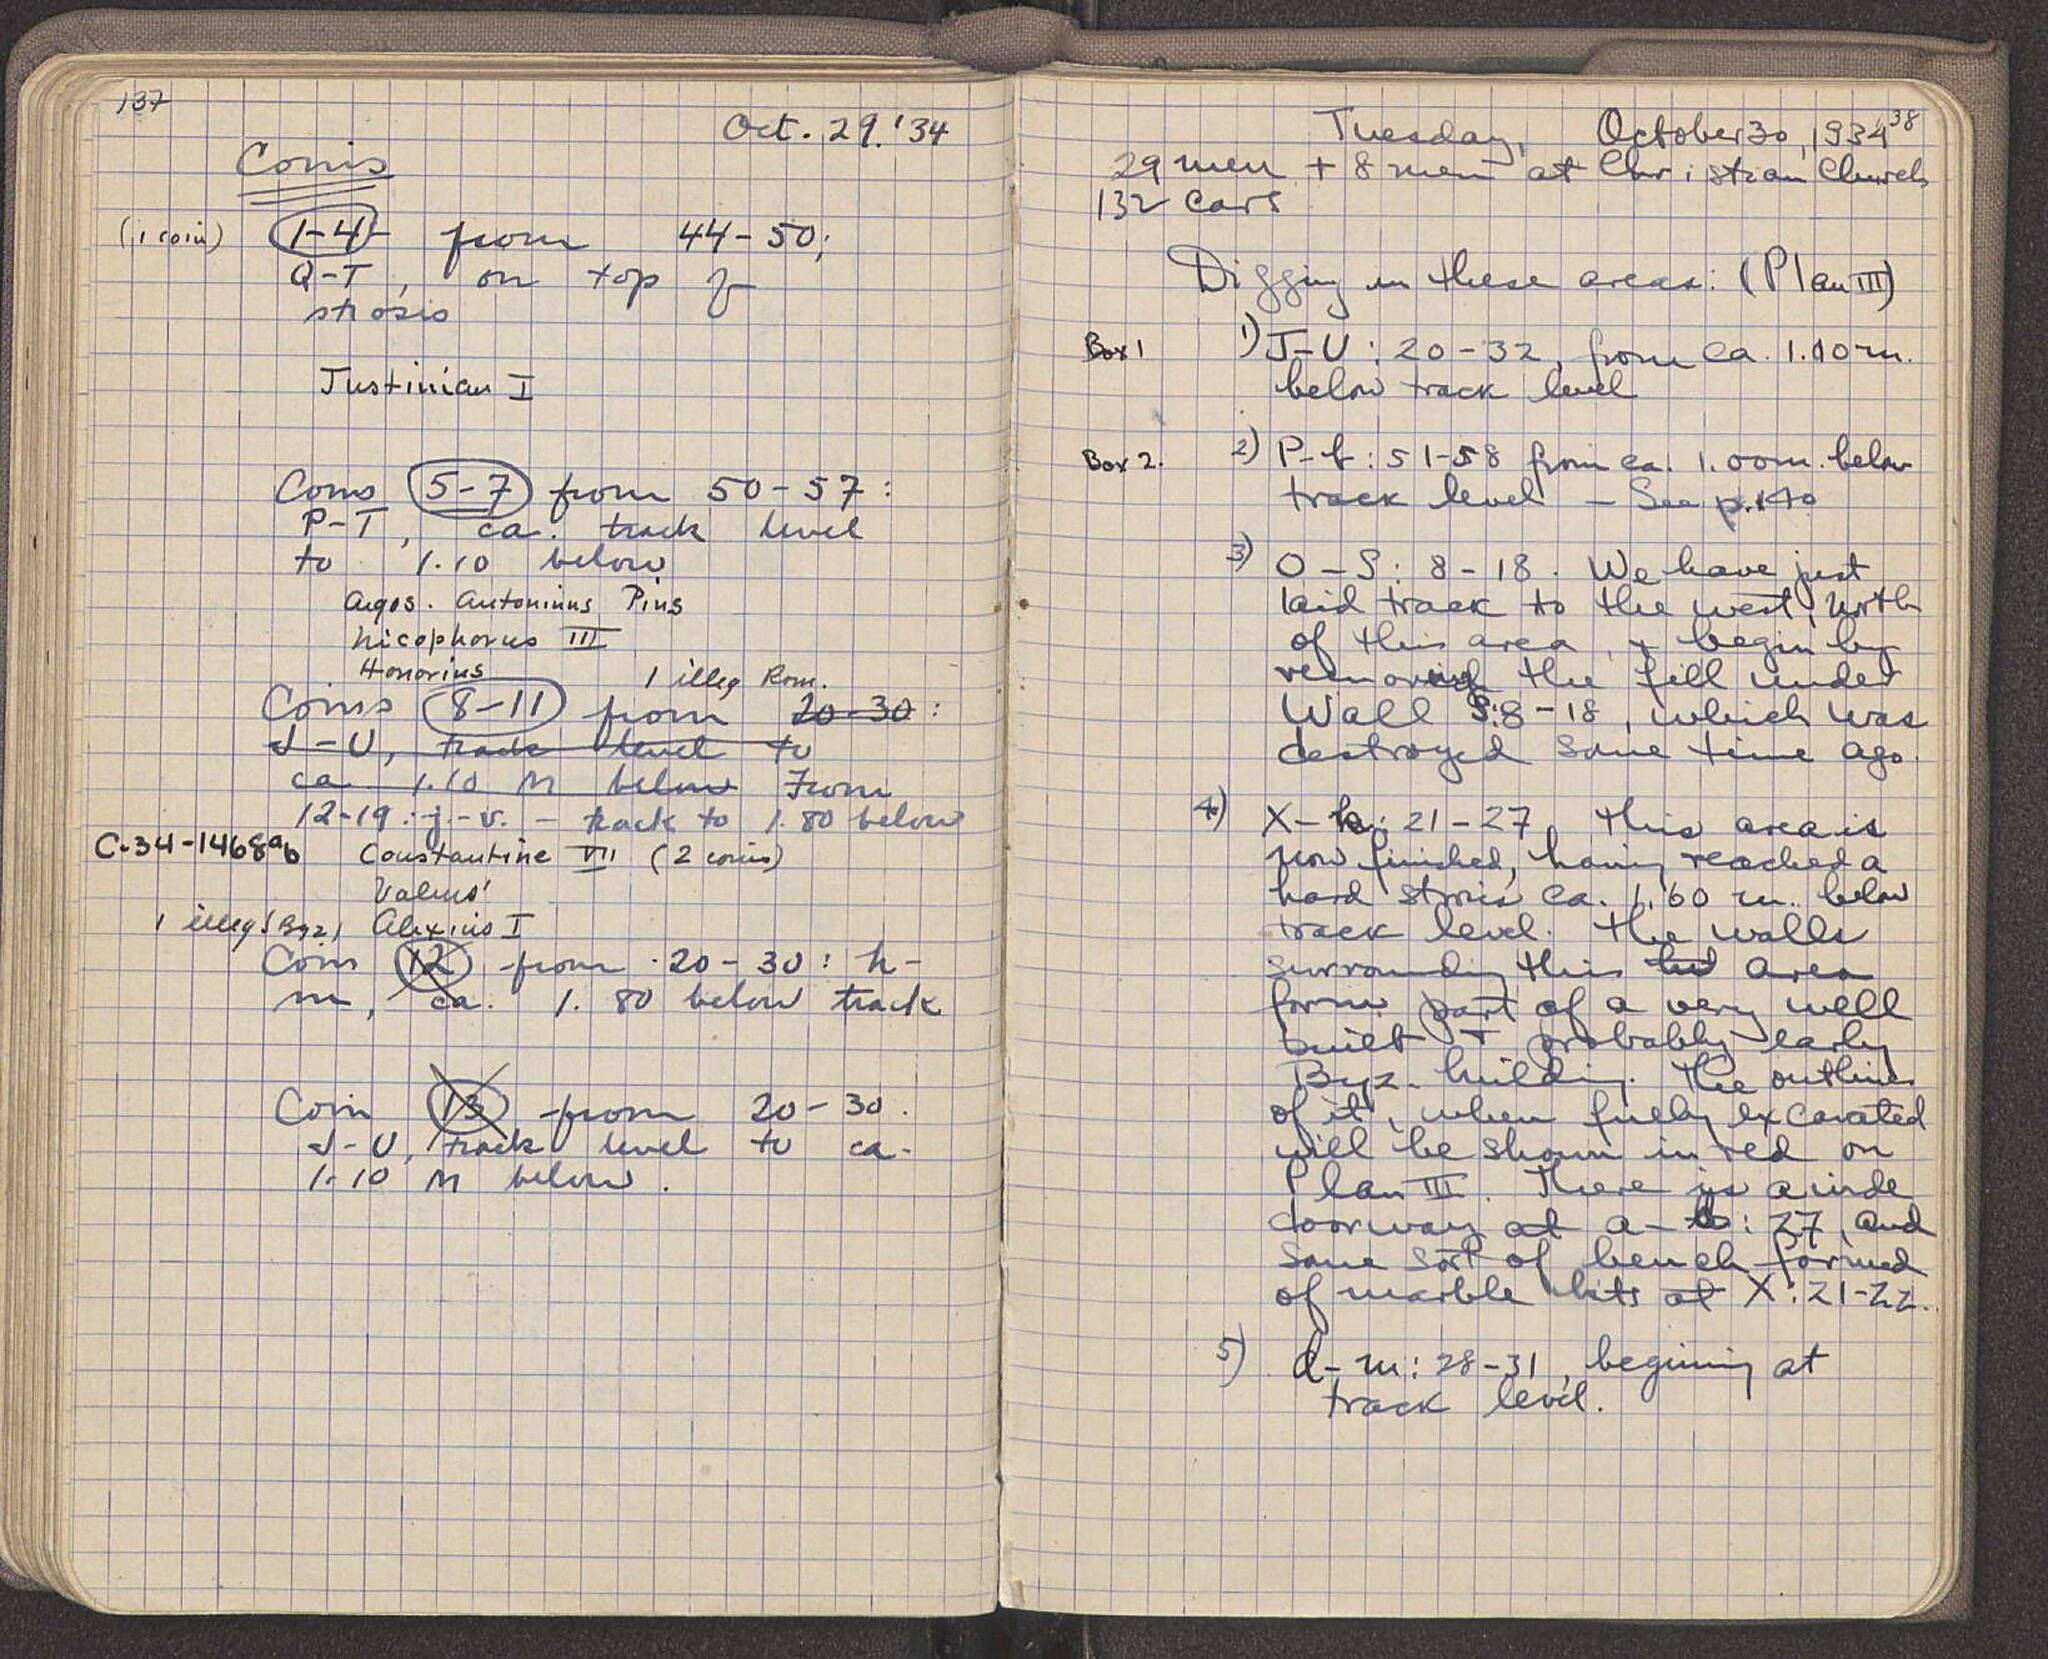 137
Oct. 29. '34
Coins
(1 coin) 1-4 from 44-50;
Q-T, on top of
strosis
Justinian I
Coins 5-7 from 50-57:
P-T, ca. track level
to 1.10 below
Argos. Antoninus Pius
Nicephorus III
Honorius 1 illeg Rom.
Coins 8-11 from 20-30:
J-U, track level to
ca. 1.10 M below From
12-19: j.-v. - track to 1.80 below
C-34-1468ab Constantine VII (2 coins)
Valens'
1 illeg (Byz) Alexius I
Coin 12 from 20-30: h-
m, ca. 1.80 below track
Coin 13 from 20-30.
J-U, track level to ca.
1.10 M below.
Tuesday, October 30, 1934 138
29 men + 8 men at Christian Church
132 cars
Digging in these areas: (Plan III)
Box 1 1) J-U: 20-32, from ca. 1.10 m.
below track level
Box 2. 2) P-f: 51-58 from ca. 1.00 m. below
track level - See p. 140
3) O-S: 8-18. We have just
laid track to the west, north
of this area, + begin by
removing the fill under
Wall S:8-18, which was
destroyed some time ago.
4) X-h: 21-27. This area is
now finished, having reached a
hard strosis ca. 1.60 m. below
track level. The walls
surrounding this area
form part of a very well
built + probably early
Byz. building. The outlines
of it, when fully excavated
will be shown in red on
Plan III. There is a wide
doorway at a-b: 27, and
some sort of bench formed
of marble bits at X: 21-22.
5) d-m: 28-31, begining at
track level.